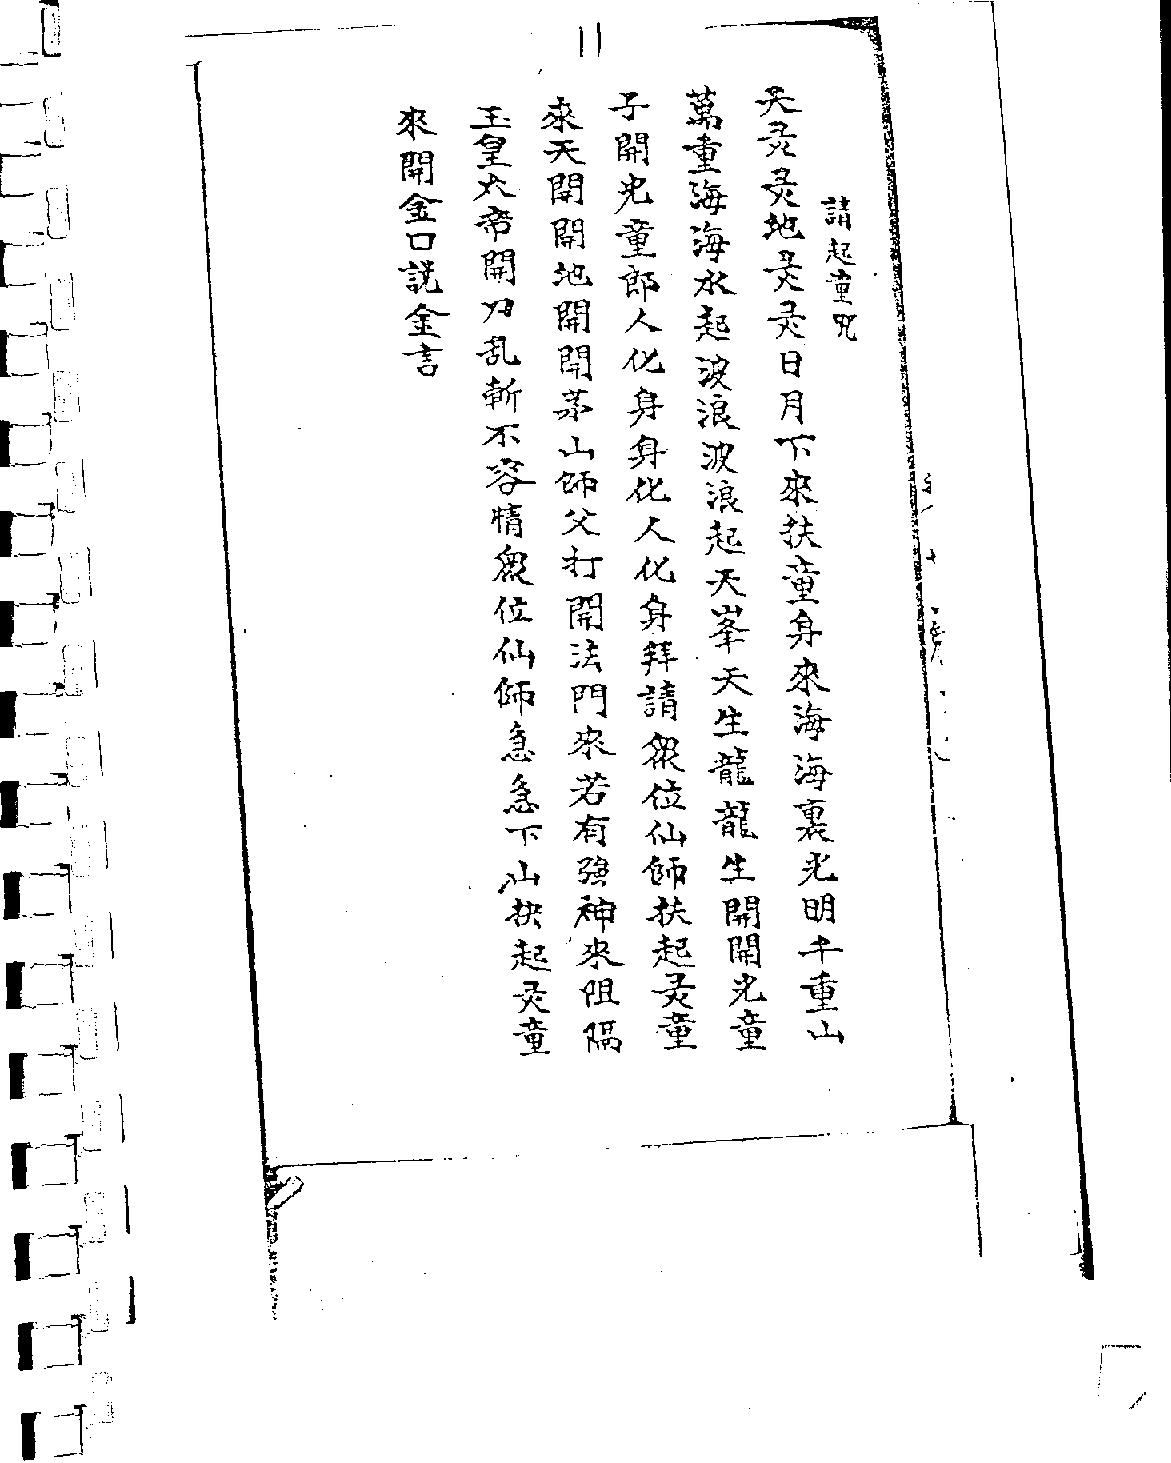 11
請起童咒
天灵灵地灵灵日月下來扶童身來海海裏光明千重山
萬重海海水起波浪波浪起天峯天生龍龍生開開光童
子開光童郎人化身身化人化身拜請眾位仙師扶起灵童
來天開開地開開茅山師父打開法門來若有強神來阻隔
玉皇大帝開刀乱斬不容情眾位仙師急急下山扶起灵童
來開金口說金言